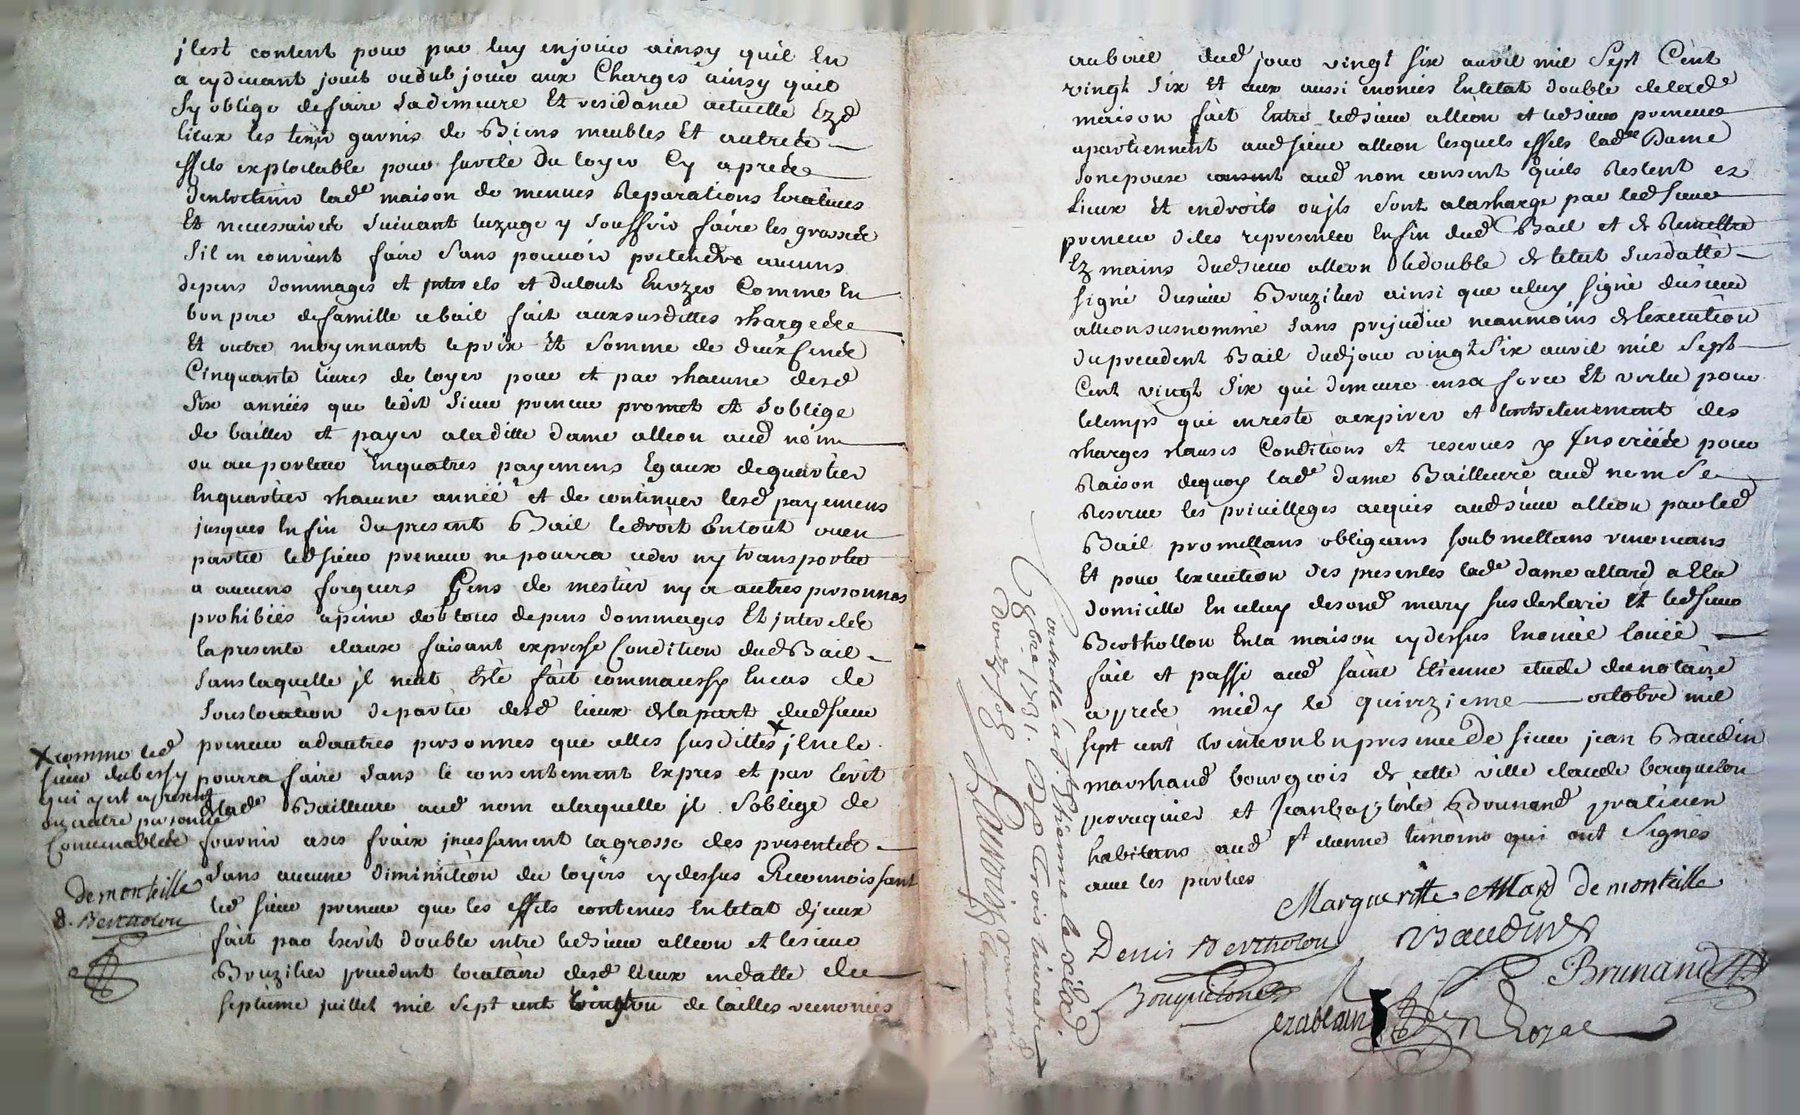 jl est content pour par luy en jouir ainsy quil en
a cydevant jouit ou dub jouir aux Charges ainsy quil
Sy oblige de faire sa demeure Et residance actuelle Ezd
lieux les tenir garnis de Biens meubles Et autrede
effets exploitable pour surete du loyer Cy aprede
dentretenir lade maison de menues Reparations locatives
Et necessaires suivant luzage y souffrir faire les grosses
Sil en convient faire sans pouvoir pretendre aucuns
depens dommages et interets et du tout En vzer Comme En
bon pere de famille ce bail fait aux susdittes charges
Et outre moyennant le prix Et somme de deux Cents
Cinquante livres de loyer pour et par chacune desd
Six années que ledit Sieur preneur promet et soblige
de bailler et payer a laditte dame alleon aud nom
ou au porteur En quatres payemens Egaux de quartier
En quartier chacune année et de continuer lesd payemens
jusques En fin du present Bail le droit En tout ou en
partie led sieur preneur ne pourra ceder ny transporter
a aucuns forgeurs Gens de mestier ny a autres personnes
prohibées a peine de tous depens dommages Et interets
la presente clause faisant expresse Condition dud Bail
Sans laquelle jl neut Eté fait comm aussy En cas de
Souslocation de partie desd lieux de la part dud sieur
preneur a dautres personnes que celles susdittes x jl ne le
pourra faire sans le consentement Expres et par Ecrit
de lade Bailleure aud nom a laquelle jl soblige de
fournir a ses fraix incessament la grosse des presentes
Sans aucune diminution du loyers cy dessus Reconnoissant
led sieur preneur que les effets contenus En letat djceux
fait par Ecrit double entre led sieur alleon et le sieur
Bruzilier precedent locataire desd lieux en datte du
septieme juillet mil sept cent vingt ou de tailles
x comme led
sieur dubessy
qui y est a present
ou autre personne
Convenable
demonteille
d. Bertholon
au bail dud jour vingt six avril mil Sept Cent
vingt Six Et aux aussi enoncés En letat double de lade
maison fait Entre led sieur alleon et led sieur preneur
apartiennent aud sieur alleon lesquels effets lade Dame
son epouse aud nom consent quils Restent ez
lieux Et endroits ou jls sont a la charge par led sieur
preneur de les representer En fin dud Bail et de Remettre
Ez mains dud sieur alleon le double de letat susdatté
signé du sieur Bruzilier ainsi que celuy signé du sieur
alleon susnommé sans prejudice neanmoins de lexecution
du precedent Bail dud jour vingt Six avril mil Sept
Cent vingt Six qui demeure en sa force Et vertu pour
le temps qui en reste a expirer et entretenement des
charges clauses Conditions et reserves y Inserées pour
Raison de quoy lade dame Bailleure aud nom Se
Reserve les privilleges acquis aud sieur alleon par led
Bail promettans obligeans soubmettans renonceans
Et pour lexecution des presentes lade dame allard a Elu
domicille En celuy de sond mary susdeclaré Et led sieur
Berthollon En la maison cy dessus Enoncée louée
fait et passé aud saint Etienne etude du notaire
aprede midy le quinzieme octobre mil
sept cent trente un En presence De sieur jean Baudin
marchand bourgeois de cette ville claude bouquelon
peruquier et Jean baptiste Brunand praticien
habitans aud st etienne temoins qui ont signés
avec les parties
Margueritte Allard Demonteille
Denis Bertholon
Baudin
Bouquelon
Brunand
Rozae
Controllé a St Ethienne le
8bre 1731. Rx trois livres
douze sols